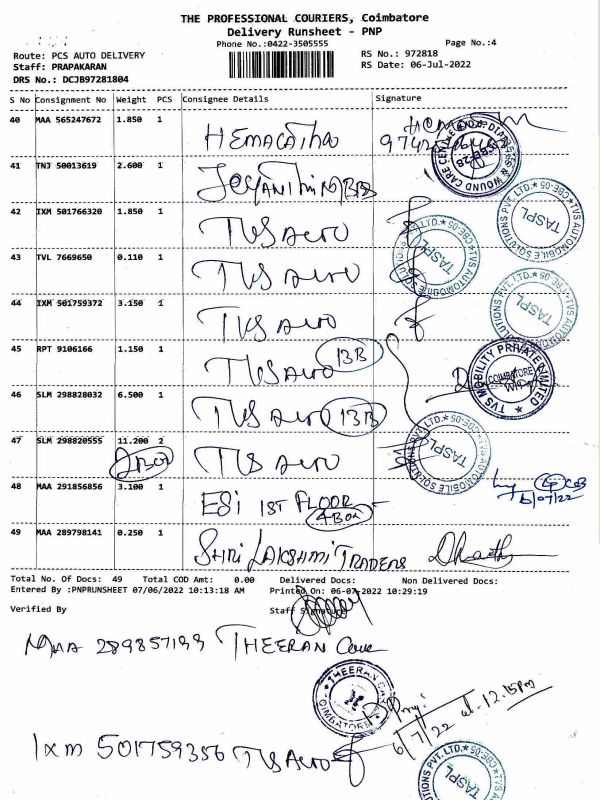 THE PROFESSIONAL COURIERS, Coimbatore
Delivery Runsheet - PNP
Phone No.:0422-3505555 Page No.:4
Route: PCS AUTO DELIVERY RS No.: 972818
Staff: PRAPAKARAN RS Date: 06-Jul-2022
DRS No.: DCJB97281804
S No Consignment No Weight PCS Consignee Details Signature
40 MAA 565247672 1.850 1
41 TNJ 50013619 2.600 1
42 IXM 501766320 1.850 1 TVS Auto
43 TVL 7669650 0.110 1 TVS Auto
44 IXM 501759372 3.150 1 TVS Auto
45 RPT 9106166 1.150 1 TVS Auto 13B
46 SLM 298828032 6.500 1 TVS Auto 13B
47 SLM 298820555 11.200 2 TVS Auto
2Box
48 MAA 291856856 3.100 1 ESi 1ST FLOOR
4Box
6/07/22
49 MAA 289798141 0.250 1 SHRI LAKSHMI TRADERS
TVS AUTOMOBILE SOLUTIONS PVT. LTD. CBE-05
TASPL
TVS MOBILITY PRIVATE LIMITED
COIMBATORE
Total No. Of Docs: 49 Total COD Amt: 0.00 Delivered Docs: Non Delivered Docs:
Entered By :PNPRUNSHEET 07/06/2022 10:13:18 AM Printed On: 06-07-2022 10:29:19
Verified By Staff Signature
MAA 289857199 THEERAN Care
6/7/22 at 12.15pm
Ixm 501759356 TVS Auto
TASPL